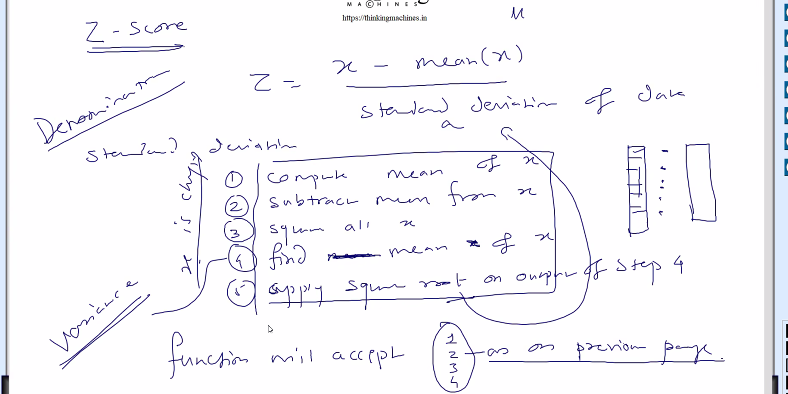 MACHINES
https://thinkingmachines.in
M
Z - Score
Z = x - mean(x)
standard deviation of data
a
Denominator
Standard deviation
① compute mean of x
② subtract mean from x
③ square all x
④ find mean of x
⑤ apply square root on output of step 4
x is chg
Variance
function will accept 1 2 3 4 as on previous page.